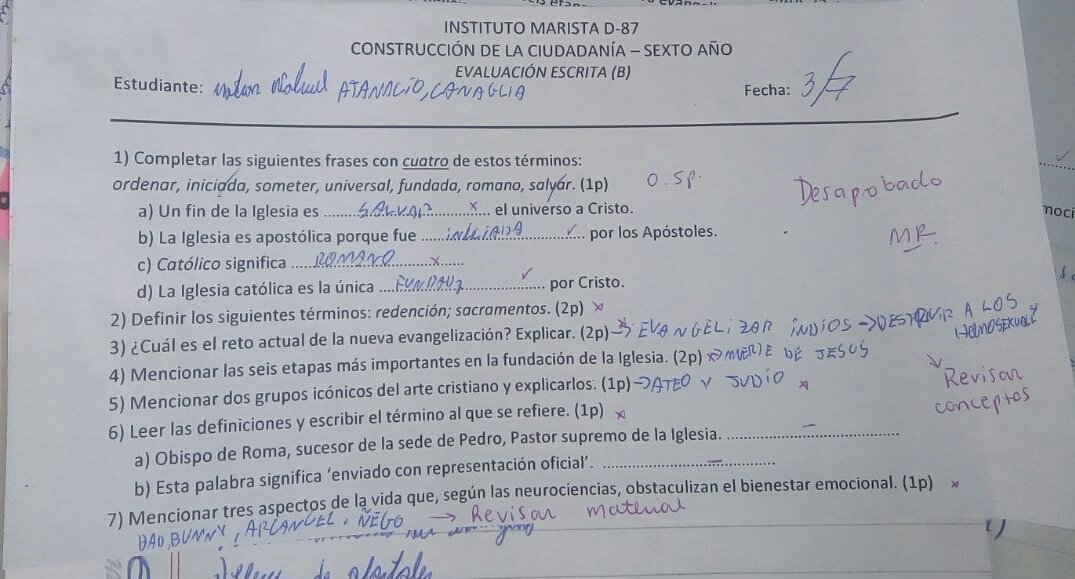 INSTITUTO MARISTA D-87
CONSTRUCCIÓN DE LA CIUDADANÍA – SEXTO AÑO
EVALUACIÓN ESCRITA (B)
Estudiante: ATANACIO, CANAGLIA Fecha: 3/7
1) Completar las siguientes frases con cuatro de estos términos:
ordenar, iniciada, someter, universal, fundada, romano, salvar. (1p) 0.5p. Desaprobado
a) Un fin de la Iglesia es SALVAR x el universo a Cristo.
b) La Iglesia es apostólica porque fue INICIADA ✓ por los Apóstoles. MR.
c) Católico significa ROMANO x
d) La Iglesia católica es la única ✓ por Cristo.
2) Definir los siguientes términos: redención; sacramentos. (2p) x
3) ¿Cuál es el reto actual de la nueva evangelización? Explicar. (2p) → EVANGELIZAR INDIOS → DESTRUIR A LOS HOMOSEXUALES
4) Mencionar las seis etapas más importantes en la fundación de la Iglesia. (2p) x → MUERTE DE JESUS
5) Mencionar dos grupos icónicos del arte cristiano y explicarlos. (1p) → ATEO Y JUDIO x
Revisar conceptos
6) Leer las definiciones y escribir el término al que se refiere. (1p) x
a) Obispo de Roma, sucesor de la sede de Pedro, Pastor supremo de la Iglesia. –
b) Esta palabra significa ‘enviado con representación oficial’. –
7) Mencionar tres aspectos de la vida que, según las neurociencias, obstaculizan el bienestar emocional. (1p) x
BAD, BUNNY, ARCANGEL, ÑEGO → Revisar material